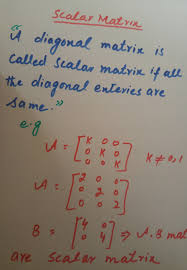 Scalar Matrix
"A diagonal matrix is
called Scalar matrix if all
the diagonal enteries are
same."
e.g
A = [K 0 0
0 K 0
0 0 K] K ≠ 0, 1
A = [2 0 0
0 2 0
0 0 2]
B = [4 0
0 4] ⇒ A, B mat
are scalar matrix